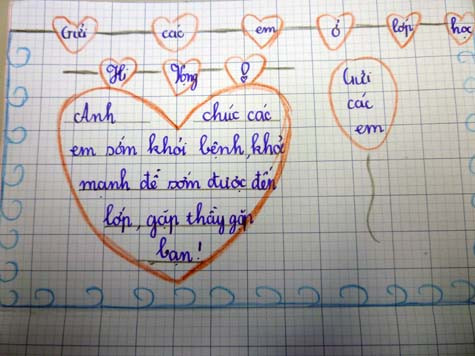 Gửi các em ở lớp học
Hi Vọng
Gửi
các
em
Anh chúc các
em sớm khỏi bệnh, khỏe
mạnh để sớm được đến
lớp, gặp thầy gặp
bạn!